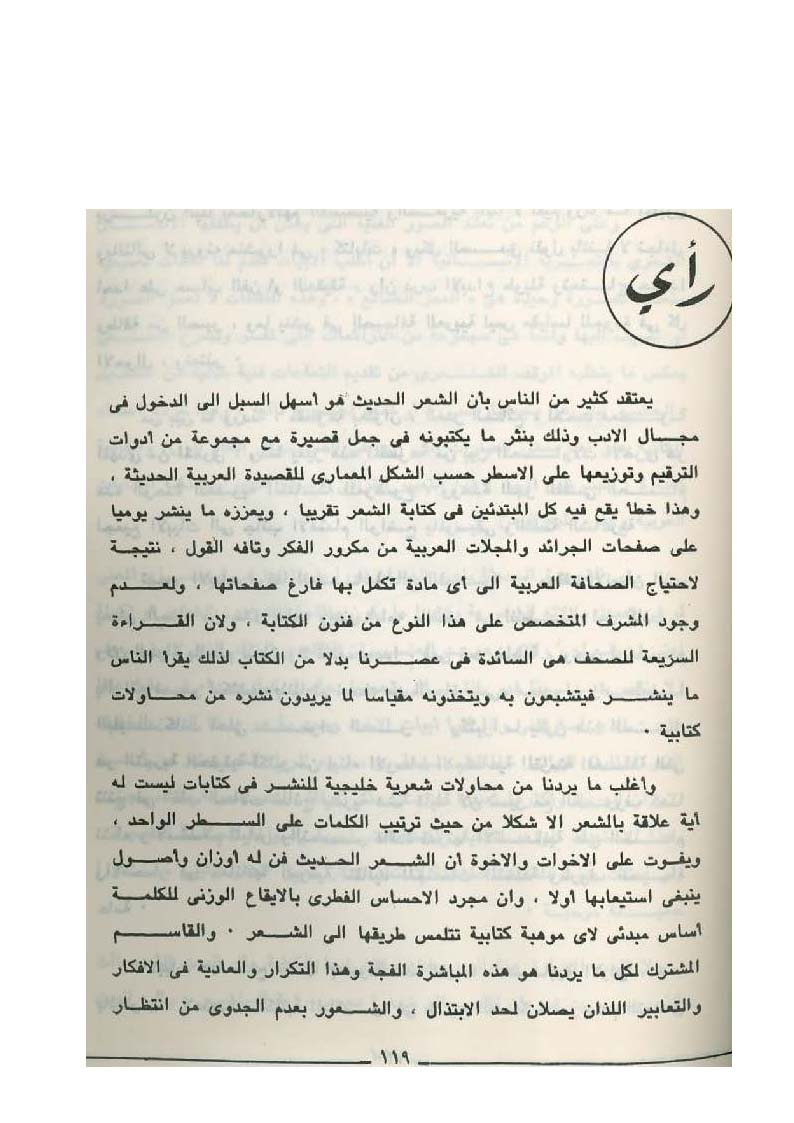 رأي
يعتقد كثير من الناس بأن الشعر الحديث هو أسهل السبل الى الدخول فى
مجـــال الادب وذلك بنثر ما يكتبونه فى جمل قصيرة مع مجموعة من أدوات
الترقيم وتوزيعها على الاسطر حسب الشكل المعمارى للقصيدة العربية الحديثة ،
وهذا خطأ يقع فيه كل المبتدئين فى كتابة الشعر تقريبا ، ويعززه ما ينشر يوميا
على صفحات الجرائد والمجلات العربية من مكرور الفكر وتافه القول ، نتيجـة
لاحتياج الصحافة العربية الى أى مادة تكمل بها فارغ صفحاتها ، ولعـــدم
وجود المشرف المتخصص على هذا النوع من فنون الكتابة ، ولان القـــراءة
السريعة للصحف هى السائدة فى عصـــرنا بدلا من الكتاب لذلك يقرأ الناس
ما ينشـــر فيتشبعون به ويتخذونه مقياسا لما يريدون نشره من محـاولات
كتابية ٠
وأغلب ما يردنا من محاولات شعرية خليجية للنشـر فى كتابات ليست له
أية علاقة بالشعر الا شكلا من حيث ترتيب الكلمات على الســـطر الواحد ،
ويفوت على الاخوات والاخوة أن الشـــعر الحديث فن له أوزان وأصـول
ينبغى استيعابها أولا ، وان مجرد الاحساس الفطرى بالايقاع الوزنى للكلمـــة
أساس مبدئى لاى موهبة كتابية تتلمس طريقها الى الشـــعر ٠ والقاســـم
المشترك لكل ما يردنا هو هذه المباشرة الفجة وهذا التكرار والعادية فى الافكار
والتعابير اللذان يصلان لحد الابتذال ، والشـــعور بعدم الجدوى من انتظـار
١١٩